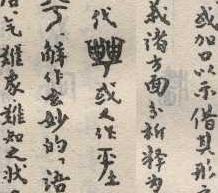 或加口以示借其形
義諸方面分析釋为
代或又作
解作玄妙的,語
气難象難知之狀